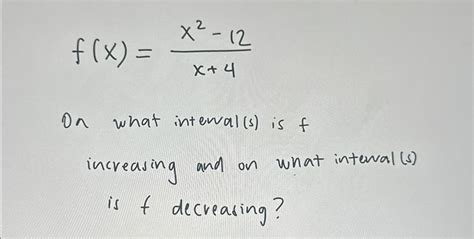 f(x) = \frac{x² - 12}{x + 4}
On what interval(s) is f
increasing and on what interval(s)
is f decreasing?